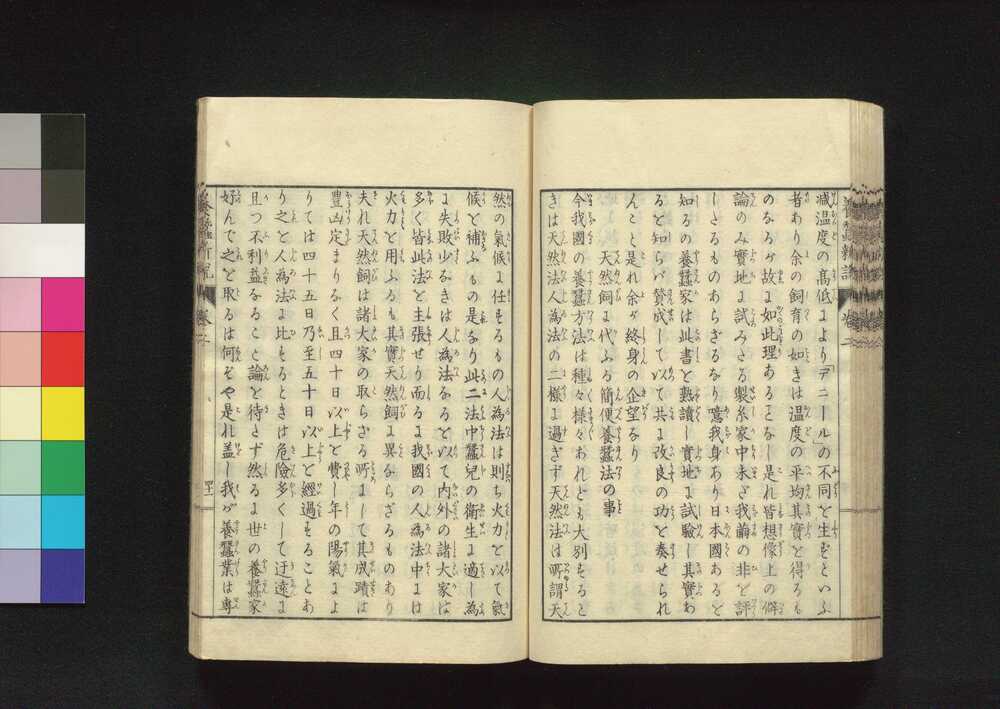 減温度の高低によりて「デニール」の不同を生ずといふ
者あり余の飼育の如きは温度の平均其實を得るも
のなるが故に如此理あることなし是れ皆想像上の僻
論のみ實地に試みざる製糸家中未だ我繭の非を評
しさるものあらざるなり噫我身あり日本國あるを
知るの養蠶家は此書を熟讀し實地に試驗し其實あ
るを知らバ賛成して以て共に改良の功を奏せられ
んこと是れ余が終身の企望なり
天然飼に代ふる簡便養蠶法の事
今我國の養蠶方法は種々様々あれども大別すると
きは天然法人為法の二様に過ぎず天然法は所謂天
然の氣候に任するもの人為法は則ち火力を以て氣
候を補ふもの是なり此二法中蠶兒の衛生に適し為
に失敗少なきは人為法なるを以て内外の諸大家は
多く皆此法を主張せり而るに我國の人為法中には
火力を用ふるも其實天然飼に異ならざるものあり
夫れ天然飼は諸大家の取らざる所にして其成蹟は
豊凶定まりなく且四十日以上を費し年の陽氣によ
りては四十五日乃至五十日以上を經過することあ
り之を人為法に比するときは危險多くして迂遠に
且つ不利益なること論を待たず然るに世の養蠶家
好んで之を取るは何ぞや是れ蓋し我が養蠶業は専